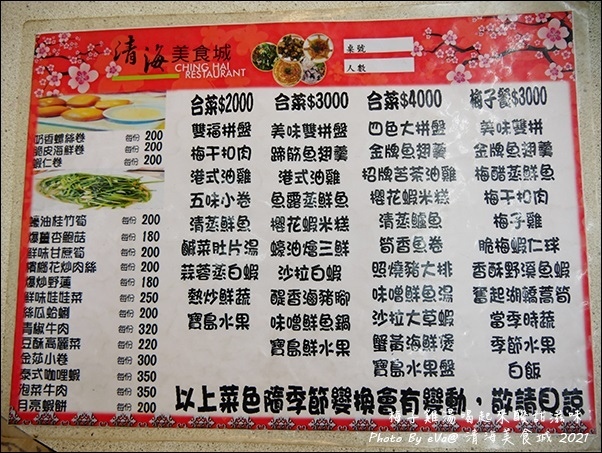 清海美食城
CHING HAI
RESTAURANT
桌號
人數
奶香螺絲卷 每份 200
脆皮海鮮卷 每份 200
蝦仁卷 每份 200
蠔油桂竹筍 每份 200
爆薑杏鮑菇 每份 180
鮮味甘蔗筍 每份 200
檳榔花炒肉絲 每份 200
爆炒野蓮 每份 180
鮮味娃娃菜 每份 250
絲瓜蛤蜊 每份 200
青椒牛肉 每份 320
豆酥高麗菜 每份 220
金莎小卷 每份 300
泰式咖哩蝦 每份 350
泡菜牛肉 每份 350
月亮蝦餅 每份 200
合菜$2000
雙福拼盤
梅干扣肉
港式油雞
五味小卷
清蒸鮮魚
鹹菜肚片湯
蒜蓉蒸白蝦
熱炒鮮蔬
寶島水果
合菜$3000
美味雙拼盤
蹄筋魚翅羹
港式油雞
魚露蒸鮮魚
櫻花蝦米糕
蠔油燴三鮮
沙拉白蝦
醒香滷豬腳
味噌鮮魚鍋
寶島鮮水果
合菜$4000
四色大拼盤
金牌魚翅羹
招牌苦茶油雞
櫻花蝦米糕
清蒸鱸魚
筒香魚卷
照燒豬大排
味噌鮮魚湯
沙拉大草蝦
蟹黃海鮮煲
寶島水果盤
梅子餐$3000
美味雙拼
金牌魚翅羹
梅醋蒸鮮魚
梅干扣肉
梅子雞
脆梅蝦仁球
香酥野溪魚蝦
奮起湖轎篙筍
當季時蔬
季節水果
白飯
以上菜色隨季節變換會有變動，敬請見諒
梅子雞湯喝起來酸甜滋味
Photo By eVa@ 清海美食城 2021